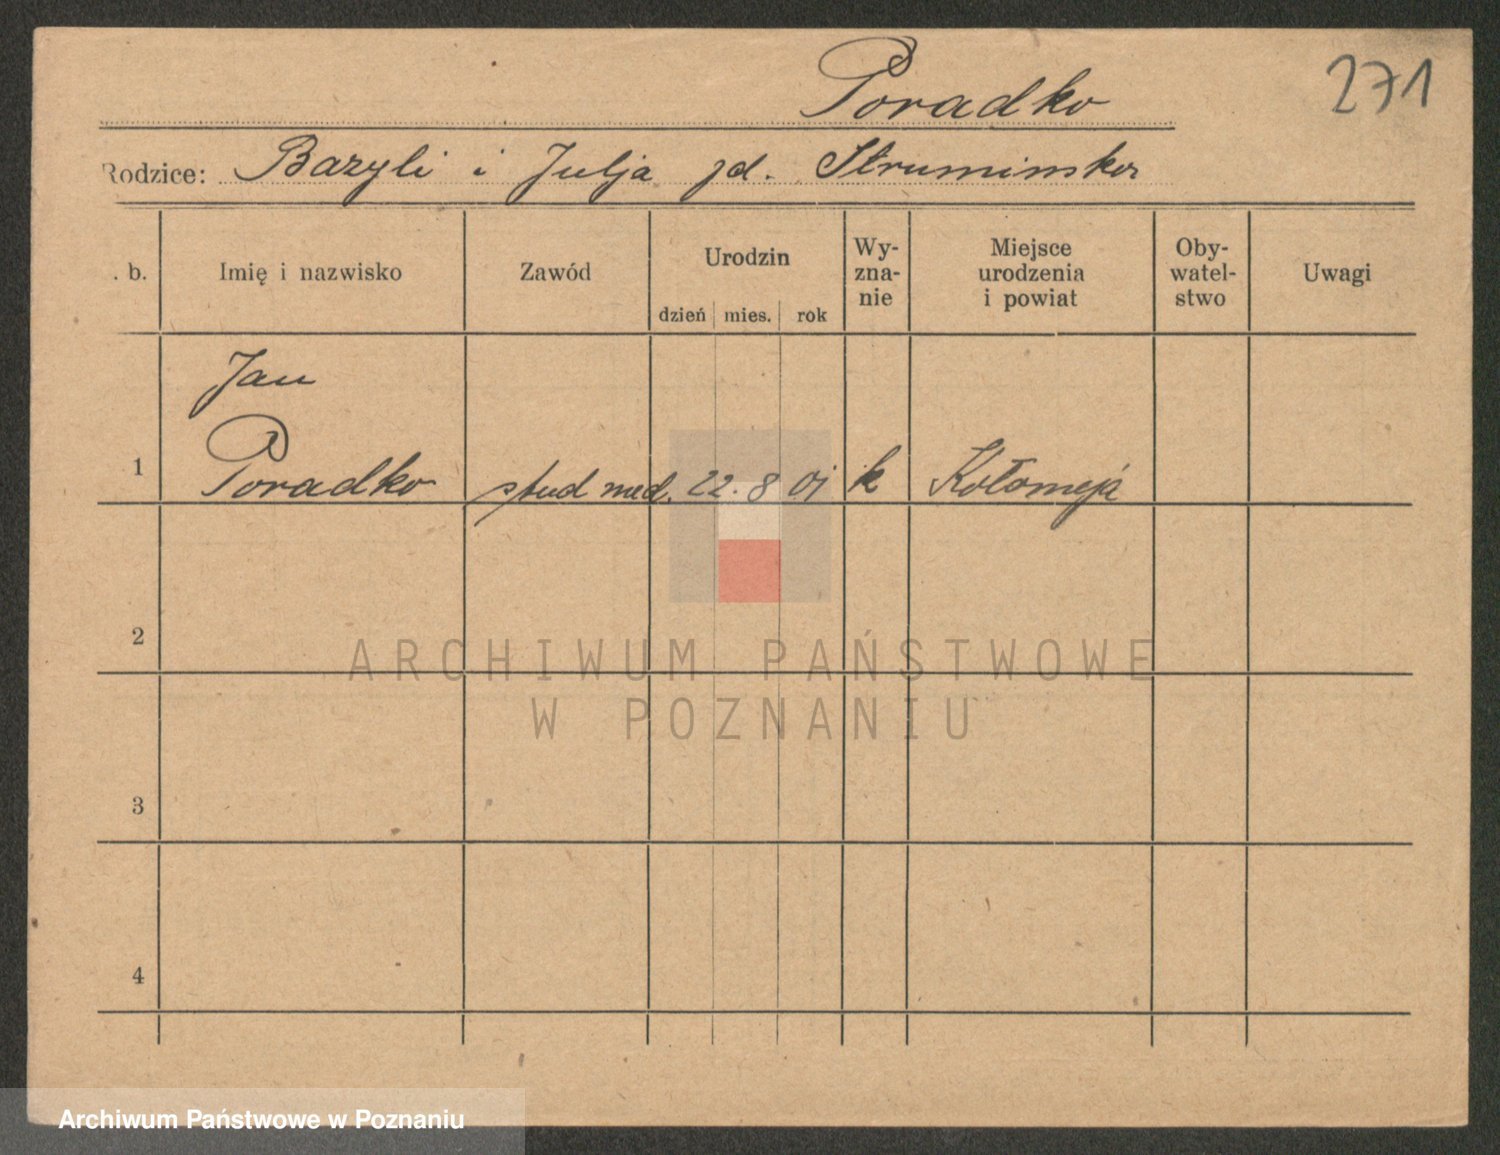 Poradko
271
Rodzice: Bazyli i Julja zd. Struminska
. b.
Imię i nazwisko
Zawód
Urodzin
dzień mies. rok
Wy-
zna-
nie
Miejsce
urodzenia
i powiat
Oby-
watel-
stwo
Uwagi
Jan
1 Poradko stud med. 22. 8 01 k Kołomeja
2
3
4
ARCHIWUM PAŃSTWOWE
W POZNANIU
Archiwum Państwowe w Poznaniu